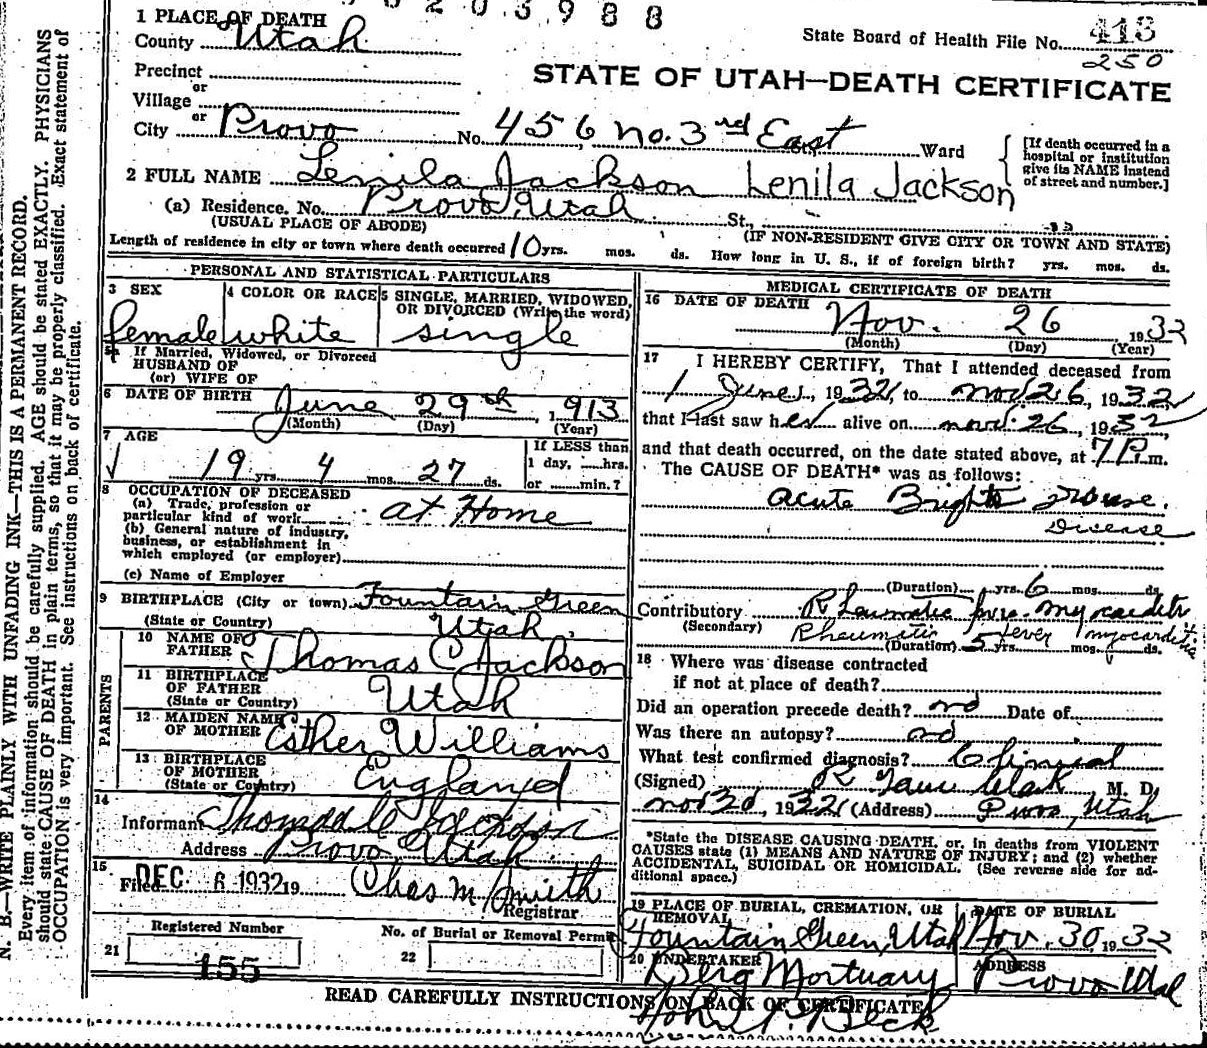 0 2 0 3 9 8 8
1 PLACE OF DEATH
County Utah
State Board of Health File No. 413
250
Precinct
or
STATE OF UTAH—DEATH CERTIFICATE
Village
or
City Provo No. 456 no. 3rd East Ward
[If death occurred in a hospital or institution give its NAME instead of street and number.]
2 FULL NAME Lenila Jackson Lenila Jackson
(a) Residence. No. Provo, Utah St.,
(USUAL PLACE OF ABODE) (IF NON-RESIDENT GIVE CITY OR TOWN AND STATE)
Length of residence in city or town where death occurred 10 yrs. mos. ds. How long in U. S., if of foreign birth? yrs. mos. ds.
PERSONAL AND STATISTICAL PARTICULARS
3 SEX 4 COLOR OR RACE 5 SINGLE, MARRIED, WIDOWED,
OR DIVORCED (Write the word)
female white single
If Married, Widowed, or Divorced
HUSBAND OF
(or) WIFE OF
6 DATE OF BIRTH June 29th, 1913
(Month) (Day) (Year)
7 AGE
If LESS than
1 day, ......hrs.
or ......min.?
19 yrs. 4 mos. 27 ds.
8 OCCUPATION OF DECEASED
(a) Trade, profession or
particular kind of work at Home
(b) General nature of industry,
business, or establishment in
which employed (or employer)
(c) Name of Employer
9 BIRTHPLACE (City or town) Fountain Green
(State or Country) Utah
PARENTS
10 NAME OF
FATHER Thomas C Jackson
11 BIRTHPLACE
OF FATHER
(State or Country) Utah
12 MAIDEN NAME
OF MOTHER Esther Williams
13 BIRTHPLACE
OF MOTHER
(State or Country) England
14
Informant Thomas C Jackson
Address Provo, Utah
15
Filed DEC 6 1932 19 Chas M Smith
Registrar
Registered Number No. of Burial or Removal Permit
21 155 22
MEDICAL CERTIFICATE OF DEATH
16 DATE OF DEATH
Nov. 26 1932
(Month) (Day) (Year)
17 I HEREBY CERTIFY, That I attended deceased from
1 June, 1932, to Nov 26, 1932,
that I last saw her alive on Nov. 26, 1932,
and that death occurred, on the date stated above, at 7 P.m.
The CAUSE OF DEATH* was as follows:
acute Brights
Disease
(Duration) yrs. 6 mos. ds.
Contributory Rheumatic myocarditis
(Secondary) Rheumatic fever myocarditis
(Duration) 5 yrs. mos. ds.
18 Where was disease contracted
if not at place of death?
Did an operation precede death? no Date of
Was there an autopsy? no
What test confirmed diagnosis? Clinical
(Signed) Clark M. D.
1932 (Address) Provo, Utah
*State the DISEASE CAUSING DEATH, or, in deaths from VIOLENT
CAUSES state (1) MEANS AND NATURE OF INJURY; and (2) whether
ACCIDENTAL, SUICIDAL OR HOMICIDAL. (See reverse side for ad-
ditional space.)
19 PLACE OF BURIAL, CREMATION, OR
REMOVAL
DATE OF BURIAL
Fountain Green, Utah Nov. 30, 1932
20 UNDERTAKER ADDRESS
Berg Mortuary Provo Utah
READ CAREFULLY INSTRUCTIONS ON BACK OF CERTIFICATE
N. B.—WRITE PLAINLY WITH UNFADING INK—THIS IS A PERMANENT RECORD.
Every item of information should be carefully supplied. AGE should be stated EXACTLY. PHYSICIANS
should state CAUSE OF DEATH in plain terms, so that it may be properly classified. Exact statement of
OCCUPATION is very important. See instructions on back of certificate.